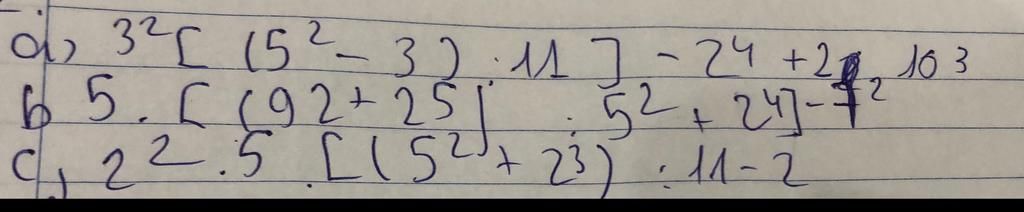 a, 3² [ (5² - 3) : 11 ] - 24 + 2 103
b 5 . [ (92 + 25) : 5² + 24] - 7²
c, 2² . 5 . [ (5² + 23) : 11 - 2